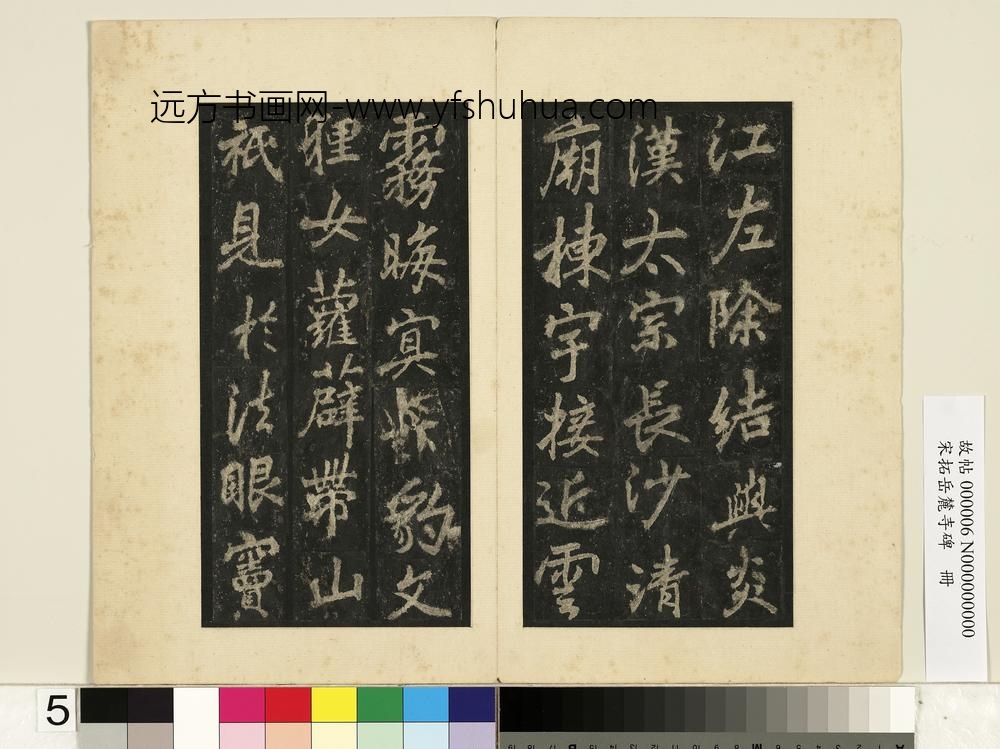 远方书画网-www.yfshuhua.com
江左除結與炎
漢太宗長沙清
廟棟宇接近雲
霧晦冥豹文
狸女蘿薜帶山
祇見於法眼竇
故帖 000006 N000000000
宋拓岳麓寺碑 冊
5